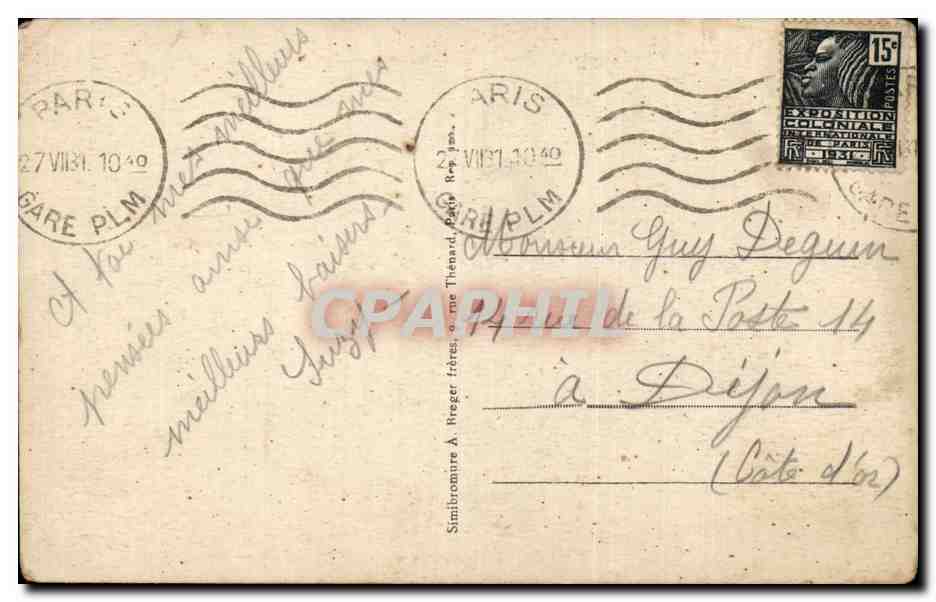 PARIS
27 VII 31. 10 40
GARE PLM
PARIS
27 VII 31. 10 40
GARE PLM
15c
POSTES
EXPOSITION
COLONIALE
INTERNATIONALE
DE PARIS
1931
GARE
et toi mes meilleurs
pensées ainsi que mes
meilleurs baisers.
Suzy
Simibromure A. Breger frères, 9, rue Thénard, Paris
Monsieur Guy Deguin
14 rue de la Poste 14
à Dijon
(Côte d'or)
CPAPHIL